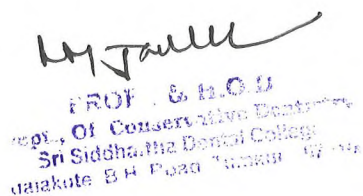 PROF . & H.O.D
Dept., Of Conservative Dentistry
Sri Siddhartha Dental College
B H Road Tumkur